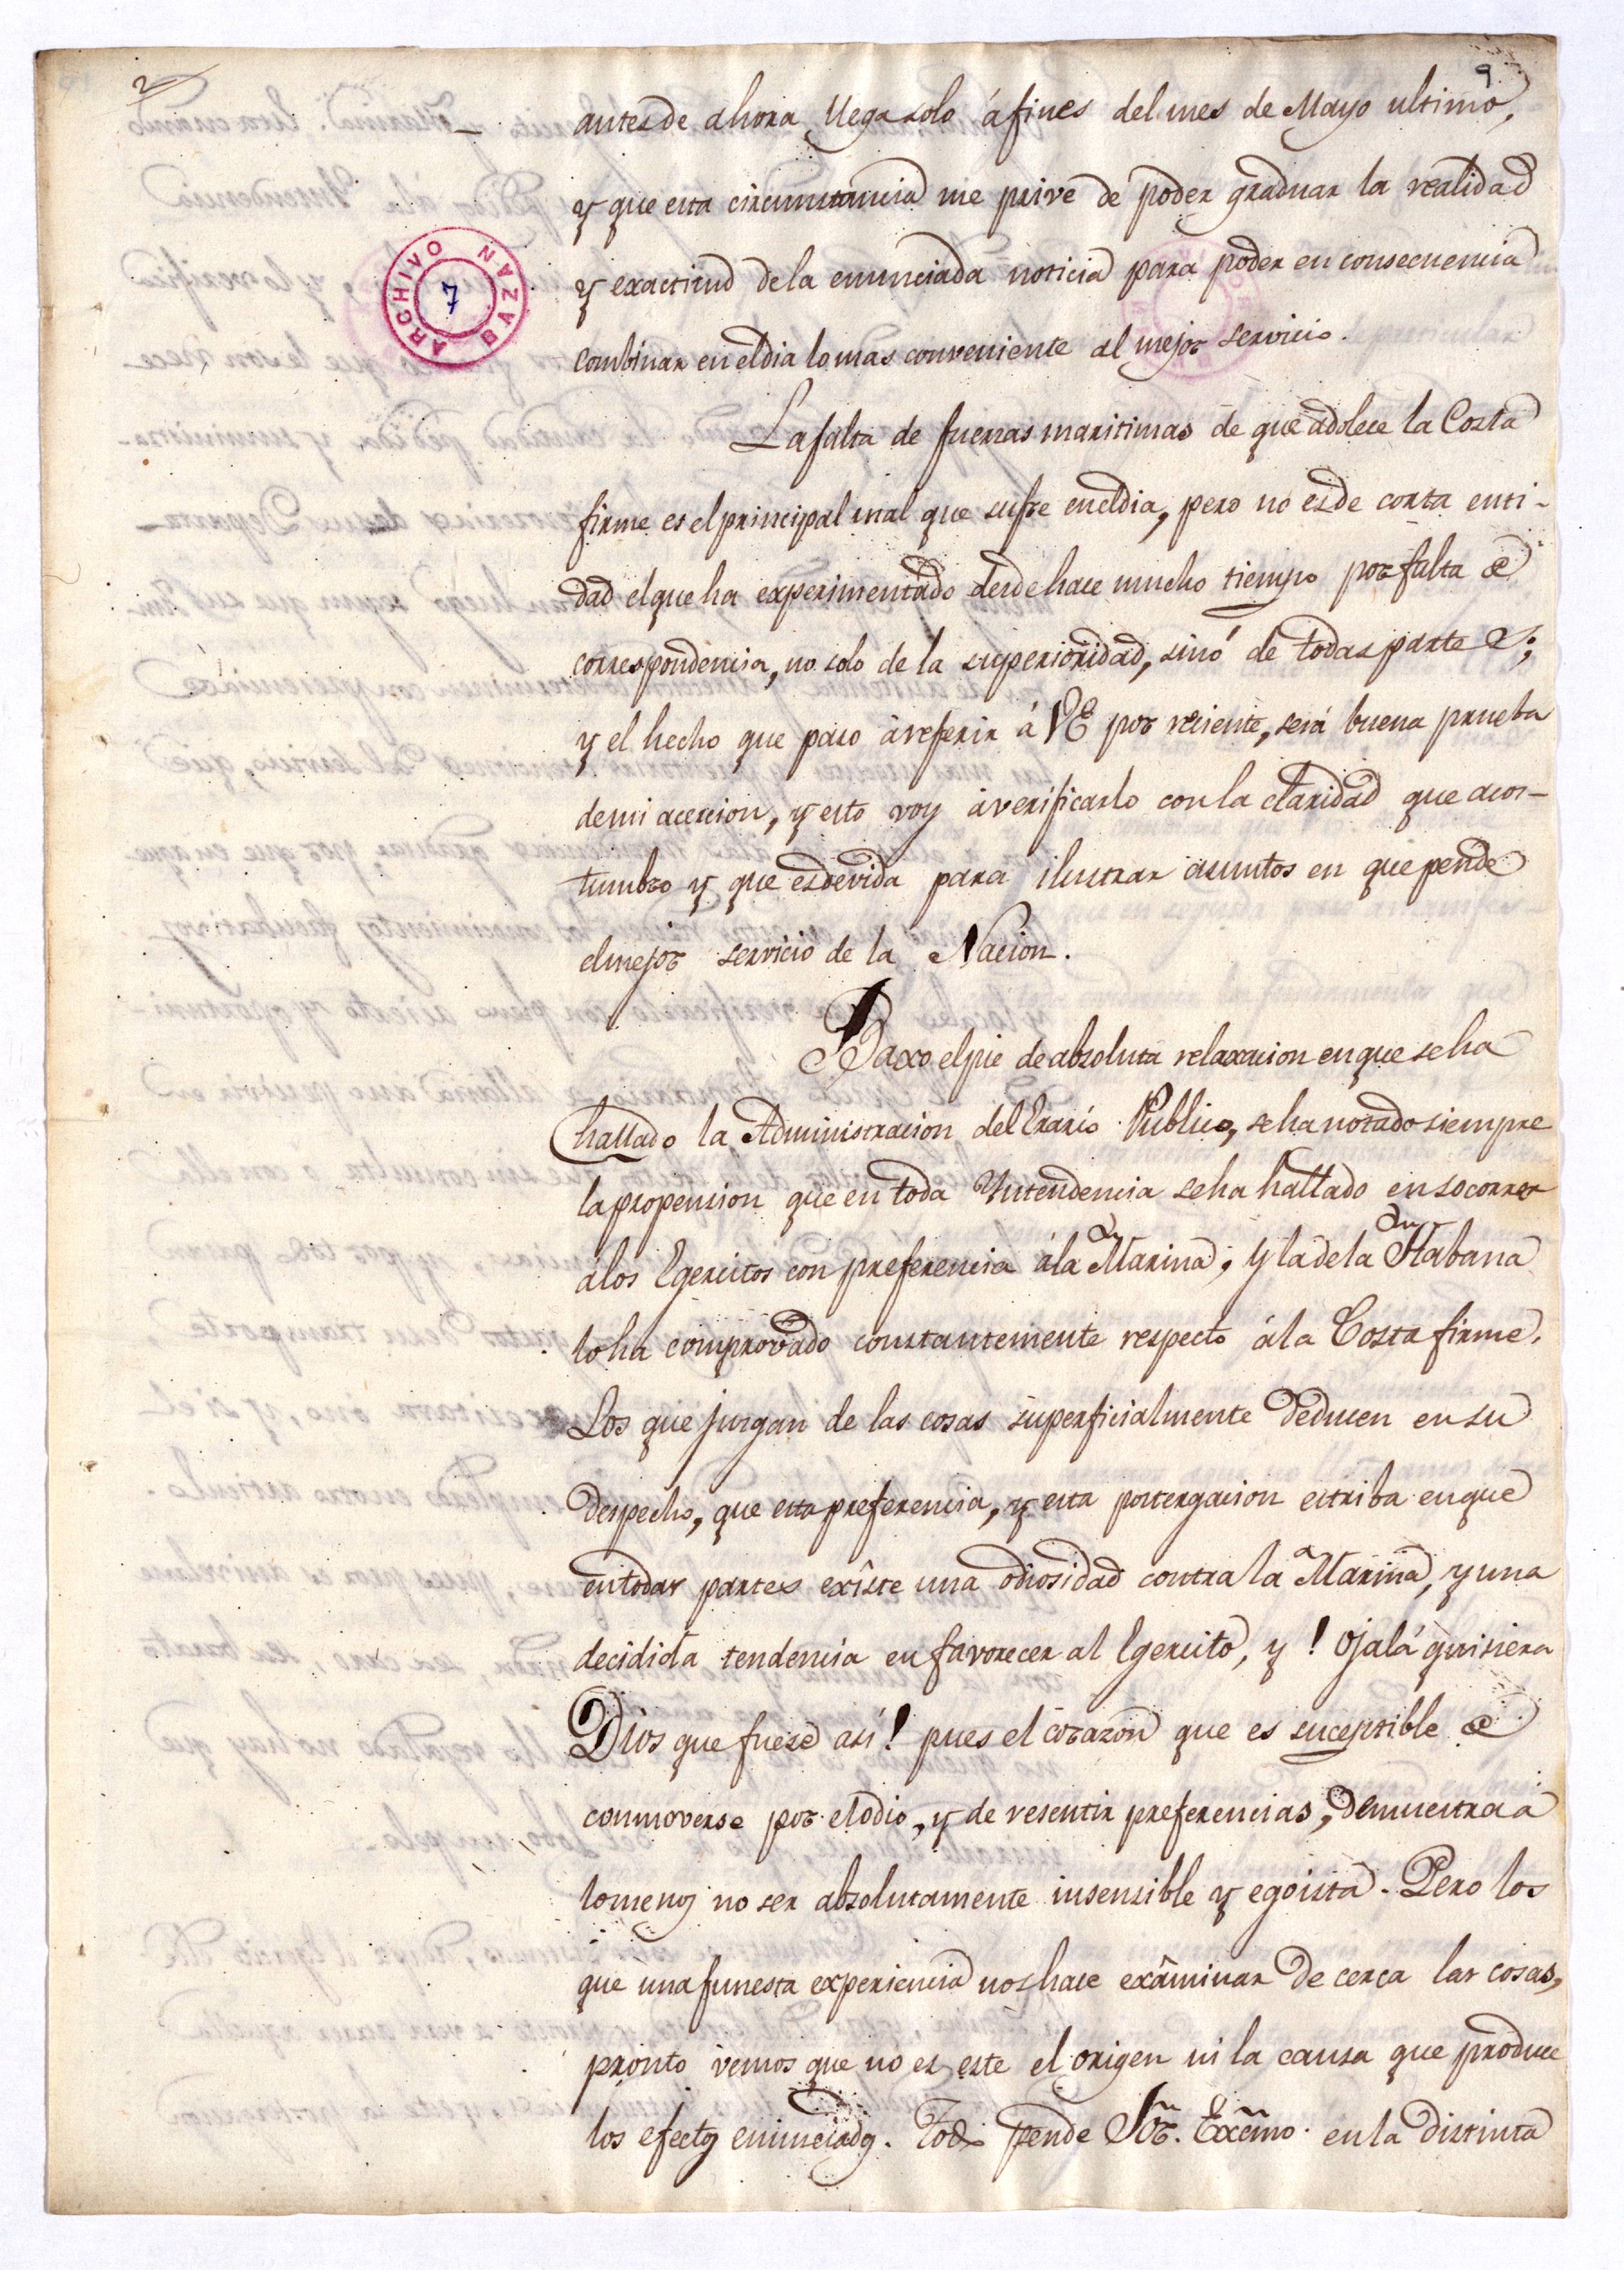 2
9
ARCHIVO BAZAN
7
antes de ahora llega solo á fines del mes de Mayo ultimo,
y que esta circunstancia me prive de poder graduar la realidad
y exactitud de la enunciada noticia para poder en consecuencia
combinar en el dia lo mas conveniente al mejor servicio.
La falta de fuerzas maritimas de que adolece la Costa
firme es el principal mal que sufre en el dia, pero no es de corta enti-
dad el que ha experimentado desde hace mucho tiempo por falta de
correspondencia, no solo de la superioridad, sinó de todas partes;
y el hecho que paso á referir á VE por reciente, será buena prueba
de mi acercion, y esto voy á verificarlo con la claridad que acos-
tumbro y que es devida para ilustrar asuntos en que pende
el mejor servicio de la Nacion.
Baxo el pie de absoluta relaxacion en que se ha
hallado la Administracion del Erario Publico, se ha notado siempre
la propension que en toda Yntendencia se ha hallado en socorrer
á los Egercitos con preferencia á la Marina; y la de la Habana
lo ha comprovado constantemente respecto á la Costa firme.
Los que juzgan de las cosas superficialmente deducen en su
despecho, que esta preferencia, y esta postergacion estriba en que
en todas partes exîste una odiosidad contra la Marina, y una
decidida tendencia en favorecer al Egercito, y ! ojalá quisiera
Dios que fuese asi! pues el corazon que es suceptible de
conmoverse por el odio, y de resentir preferencias, demuestra á
lo menos no ser absolutamente insensible y egoista. Pero los
que una funesta experiencia nos hace exâminar de cerca las cosas,
pronto vemos que no es este el origen ni la causa que produce
los efectos enunciados. Todo pende Sõr. Excm̃o. en la distinta